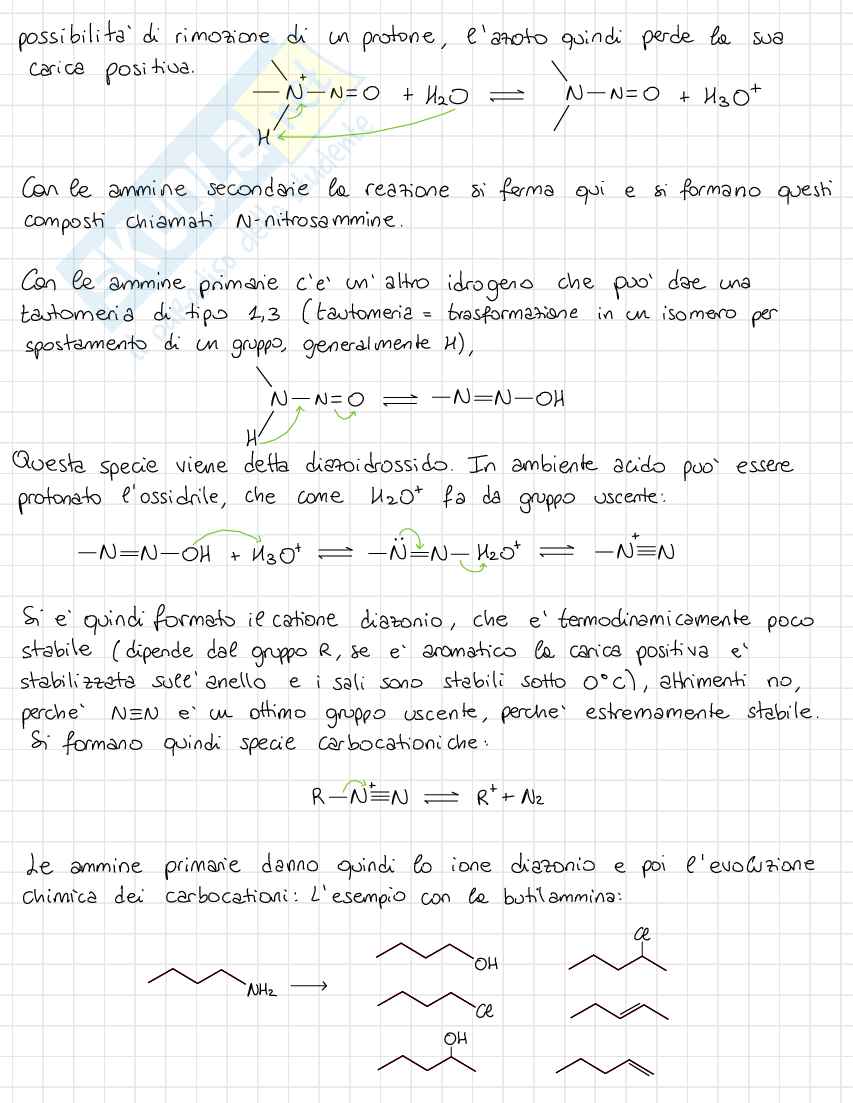 possibilità di rimozione di un protone, l'azoto quindi perde la sua
carica positiva.
—N⁺—N=O + H₂O ⇌ N—N=O + H₃O⁺
H
Con le ammine secondarie la reazione si ferma qui e si formano questi
composti chiamati N-nitrosammine.
Con le ammine primarie c'è un'altro idrogeno che può dare una
tautomeria di tipo 1,3 (tautomeria = trasformazione in un isomero per
spostamento di un gruppo, generalmente H),
N—N=O ⇌ —N=N—OH
H
Questa specie viene detta diazoidrossido. In ambiente acido può essere
protonato l'ossidrile, che come H₂O⁺ fa da gruppo uscente:
—N=N—OH + H₃O⁺ ⇌ —N̈=N—H₂O⁺ ⇌ —N⁺≡N
Si è quindi formato il catione diazonio, che è termodinamicamente poco
stabile (dipende dal gruppo R, se è aromatico la carica positiva è
stabilizzata sull'anello e i sali sono stabili sotto 0°C), altrimenti no,
perché N≡N è un ottimo gruppo uscente, perché estremamente stabile.
Si formano quindi specie carbocationiche:
R—N⁺≡N ⇌ R⁺ + N₂
Le ammine primarie danno quindi lo ione diazonio e poi l'evoluzione
chimica dei carbocationi: L'esempio con la butilammina:
Cl
OH
NH₂ ⟶
Cl
OH
SKUOLA.net
il paradiso dello studente